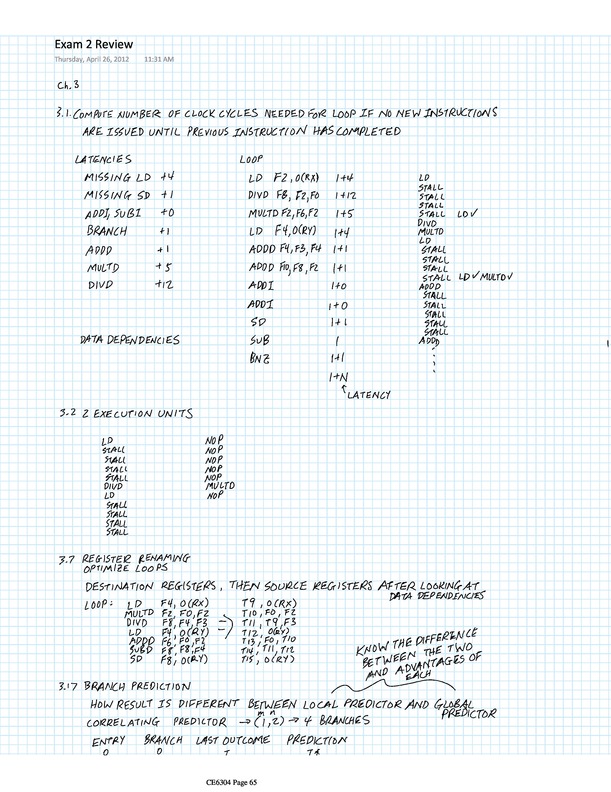 Exam 2 Review
Thursday, April 26, 2012 11:31 AM
Ch. 3
3.1. COMPUTE NUMBER OF CLOCK CYCLES NEEDED FOR LOOP IF NO NEW INSTRUCTIONS
ARE ISSUED UNTIL PREVIOUS INSTRUCTION HAS COMPLETED
LATENCIES
MISSING LD +4
MISSING SD +1
ADDI, SUBI +0
BRANCH +1
ADDD +1
MULTD +5
DIVD +12
DATA DEPENDENCIES
LOOP
LD F2, 0(RX) 1+4
DIVD F8, F2, F0 1+12
MULTD F2, F6, F2 1+5
LD F4, 0(RY) 1+4
ADDD F4, F3, F4 1+1
ADDD F10, F8, F2 1+1
ADDI 1+0
ADDI 1+0
SD 1+1
SUB 1
BNZ 1+1
1+N
LATENCY
LD
STALL
STALL
STALL
STALL LD✓
DIVD
MULTD
LD
STALL
STALL
STALL
STALL LD✓ MULTD✓
ADDD
STALL
STALL
STALL
STALL
STALL
ADDD
3.2 2 EXECUTION UNITS
LD NOP
STALL NOP
STALL NOP
STALL NOP
STALL NOP
DIVD MULTD
LD NOP
STALL
STALL
STALL
STALL
3.7 REGISTER RENAMING
OPTIMIZE LOOPS
DESTINATION REGISTERS, THEN SOURCE REGISTERS AFTER LOOKING AT
DATA DEPENDENCIES
LOOP: LD F4, 0(RX) T9, 0(RX)
MULTD F2, F0, F2 T10, F0, F2
DIVD F8, F4, F3 T11, T9, F3
LD F4, 0(RY) T12, 0(RY)
ADDD F6, F0, F2 T13, F0, T10
SUBD F8, F8, F4 T14, T11, T12
SD F8, 0(RY) T15, 0(RY)
KNOW THE DIFFERENCE
BETWEEN THE TWO
AND ADVANTAGES OF
EACH
3.17 BRANCH PREDICTION
HOW RESULT IS DIFFERENT BETWEEN LOCAL PREDICTOR AND GLOBAL
PREDICTOR
m n
CORRELATING PREDICTOR → (1,2) → 4 BRANCHES
ENTRY BRANCH LAST OUTCOME PREDICTION
0 0 T
CE6304 Page 65